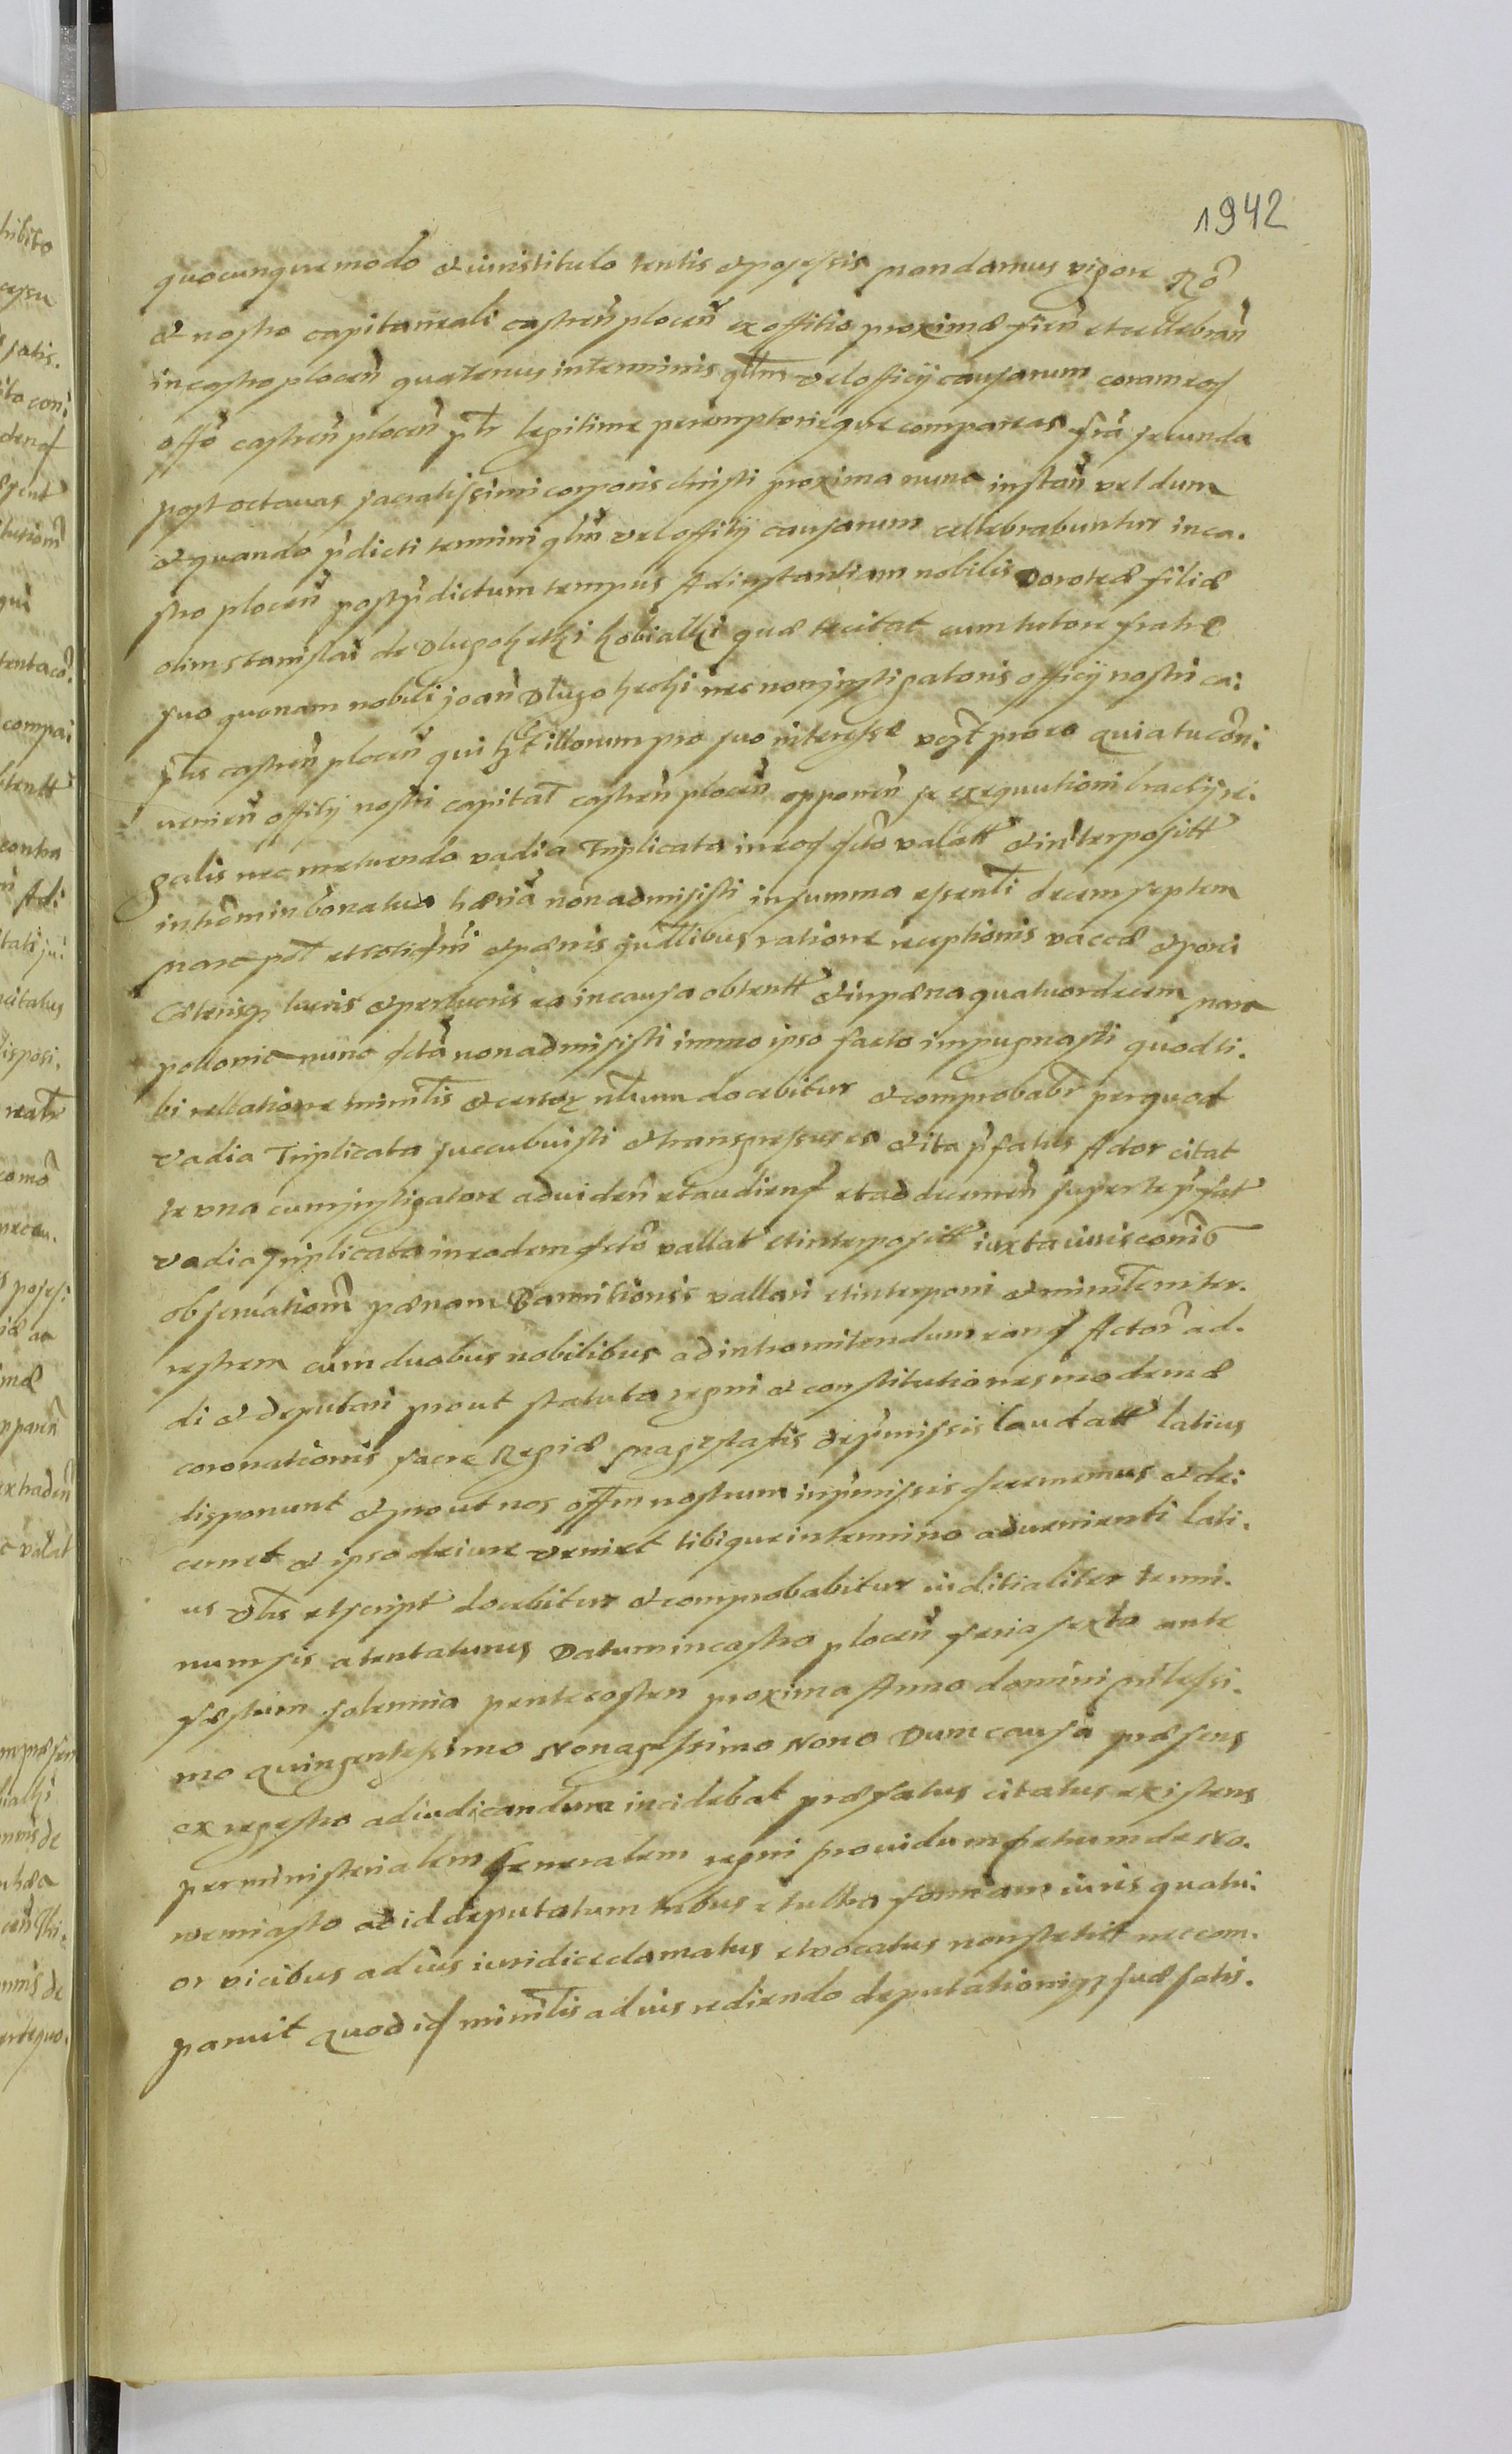 1942
quocunque modo et iuris titulo tentis et possessis mandamus vigore
et nostro capitaneali castren̄ plocen̄ ex offitio proximæ fien̄ et cellebran̄
in castro plocen̄ quatenus in terminis qlm̄ vel officij causarum coram eod
offō castren̄ plocen̄ ptr̄ legitime peremptorieque compareas frā secunda
post octauas sacratissimi corporis christi proxima nunc instan̄ vel dum
et quando p̄dicti termini qlm̄ vel offitij causarum cellebrabuntur in ca.
stro plocen̄ post p̄dictum tempus Ad instantiam nobilis Doroteæ filiæ
olim stanislai de Dlugoketki kobialki quæ te citat cum tutore fratre
suo quonam nobili joan̄ Dlugo keckị nec non instigatoris officij nostri ca:
plis castren̄ plocen̄ qui illorum pro suo interesse pro eo quia tu cōn:
uenien̄ offitij nostri capitāl castren̄ plocen̄ opponen̄ se exequutioni brachij re.
galis nec metuendo vadia Triplicata in eod fcto valatt et interpositt
in bona tua non admisisti in summa essenti decem septem
marc pol et pænis ratione receptionis vaccæ et porci
Cæterisq lucris et perlucris ea in causa obtentt et in pæna quatuordecim marc
polonic nunc fctā non admisisti immo ipso facto impugnasti quod ti.
bi rellatione minilis docebitur et comprobabr̄ per quod
vadia Triplicata succubuisti et transgressus es et ita p̄fatus Actor citat
te vna cum instigatore ad viden̄ et audiend et ad decernen̄ super te p̄fat
vadia triplicata in eodem fcto vallat et interpositt iuxta iuris cōnis
obseruationem pænam Bannitionis vallari et interponi et
restrem cum duobus nobilibus ad intromitendum eand Actor̄ ad.
di et deputari prout statuta regni et constitutiones modernæ
coronationis sacræ Regiæ Magestatis de p̄missis laudatt latius
disponunt et prout nos offm nostrum in p̄missis decernemus et de:
cernet et ipso de iure veniet tibique in termino aduenienti lati.
us vlis et script docebitur et comprobabitur iuditialiter termi.
num sis atentaturus Datum in castro plocen̄ feria sexta ante
fæstum solennia pentecosten proxima Anno domini millessi.
mo quingentesimo Nonagessimo Nono Dum causa præsens
ex regestro ad iudicandum incidebat præfatus citatus existens
per ministerialem Generalem regni prouidum petrum de No.
wemiasto ad id deputatum trebus et ultra formam iuris quatu:
or vicibus ad ius iuridice clamatus et vocatus non stetitt nec com.
paruit Quod id minilis ad ius rediendo deputationiq suæ satis.